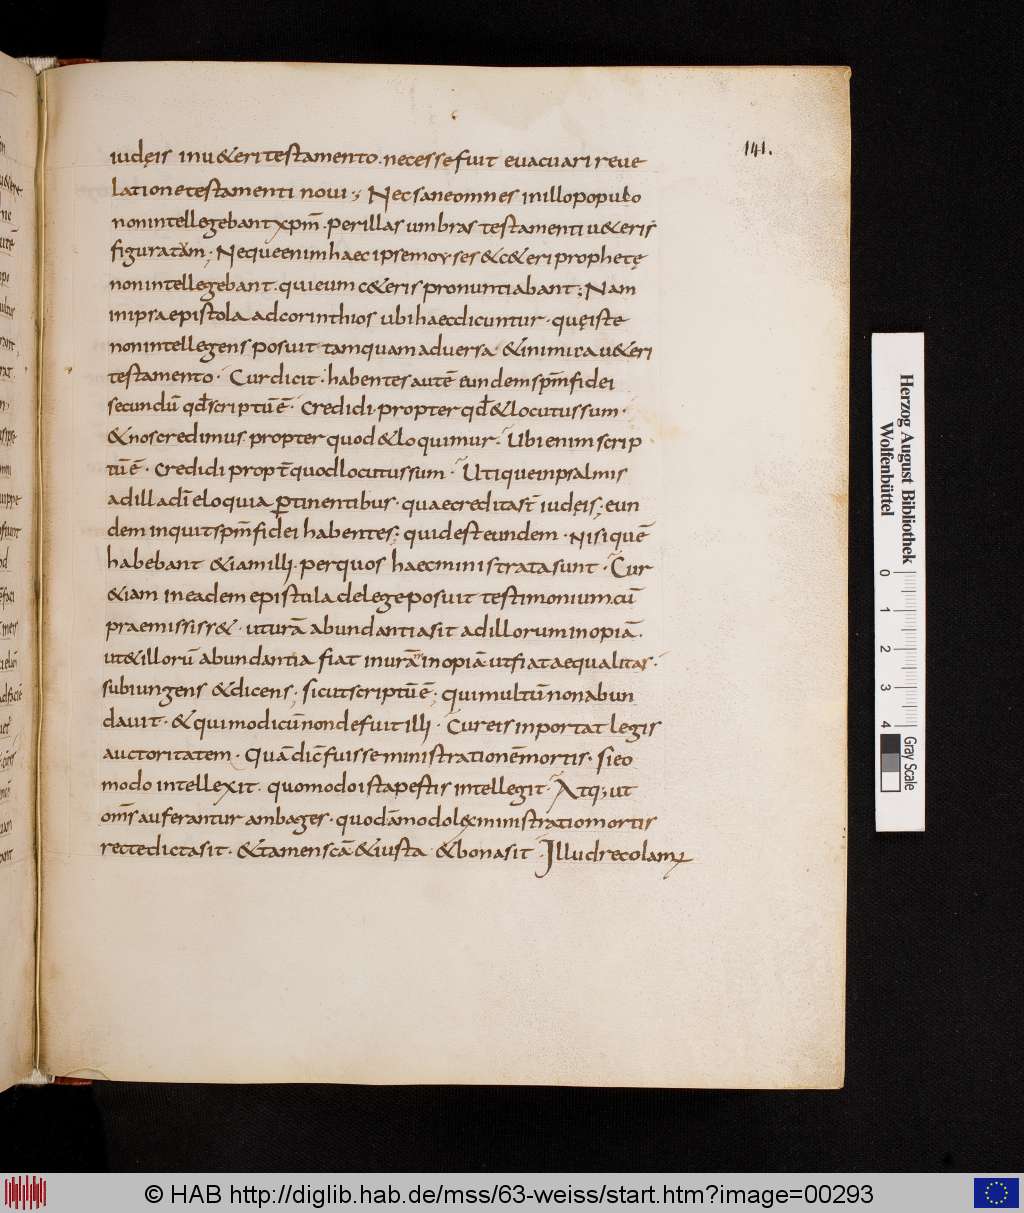 141.
iudęis inu&eri testamento. necesse fuit euacuari reue
latione testamenti noui; Nec sane omnes in illo populo
non intellegebant xpm̄. per illas umbras testamenti u&eris
figuratam; Neque enim haec ipse moyses & c&eri prophetę
non intellegebant. qui eum c&eris pronuntiabant; Nam
in ipsa epistola ad corinthios ubi haec dicuntur. quę iste
non intellegens posuit tamquam aduersa & inimica u&eri
testamento. Cur dicit. habentes autē eundem spm̄ fidei
secundū qd̄ scriptū ē. Credidi propter qd̄ & locutus sum.
& nos credimus. propter quod & loquimur. Ubi enim scrip
tū ē. credidi propt̄ quod locutus sum. Utique in psalmis
ad illa dī eloquia ꝑtinentibus. quae credita st̄ iudęis; eun
dem inquit spm̄ fidei habentes; quid est eundem. nisi quē
habebant & iam illi. per quos haec ministrata sunt. Cur
& iam in eadem epistula de lege posuit testimonium. cū
praemississ&. ut urā abundantia sit ad illorum inopiā.
ut & illorū abundantia fiat in urām inopiā. ut fiat aequalitas.
subiungens & dicens; sicut scriptū ē; qui multū non abun
dauit. & qui modicū non defuit illi. Cur eis inportat legis
auctoritatem. Quā dic̄ fuisse ministrationē mortis. si eo
modo intellexit. quomodo ista pestis intellegit. Atq; ut
om̄s auferantur ambages. quodāmodo lex ministratio mortis
recte dicta sit. & tamen scā. & iusta & bona sit. Illud recolam;
Herzog August Bibliothek
Wolfenbüttel
0 1 2 3 4
Gray Scale
© HAB http://diglib.hab.de/mss/63-weiss/start.htm?image=00293